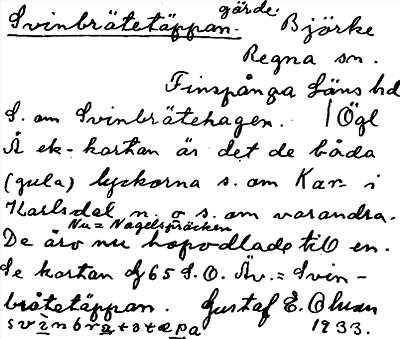 Svinbrätetäppan. gärde. Björke
Regna sn.
Finspånga Läns hd
S. om Svinbrätehagen. | Ögl
Å ek-kartan är det de båda
(gula) lyckorna s. om Kar- i
Karlsdal n. o s. om varandra.
Nu = Nagelspräcken
De äro nu hopodlade till en.
Se kartan G65 S.O. Äv. = Svin-
bråtetäppan. Gustaf E. Olsson
1933.